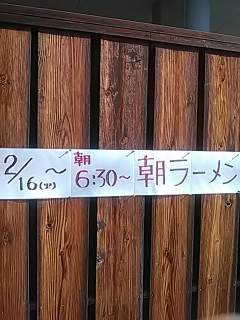 2/16(火)〜
朝
6:30〜
朝ラーメン